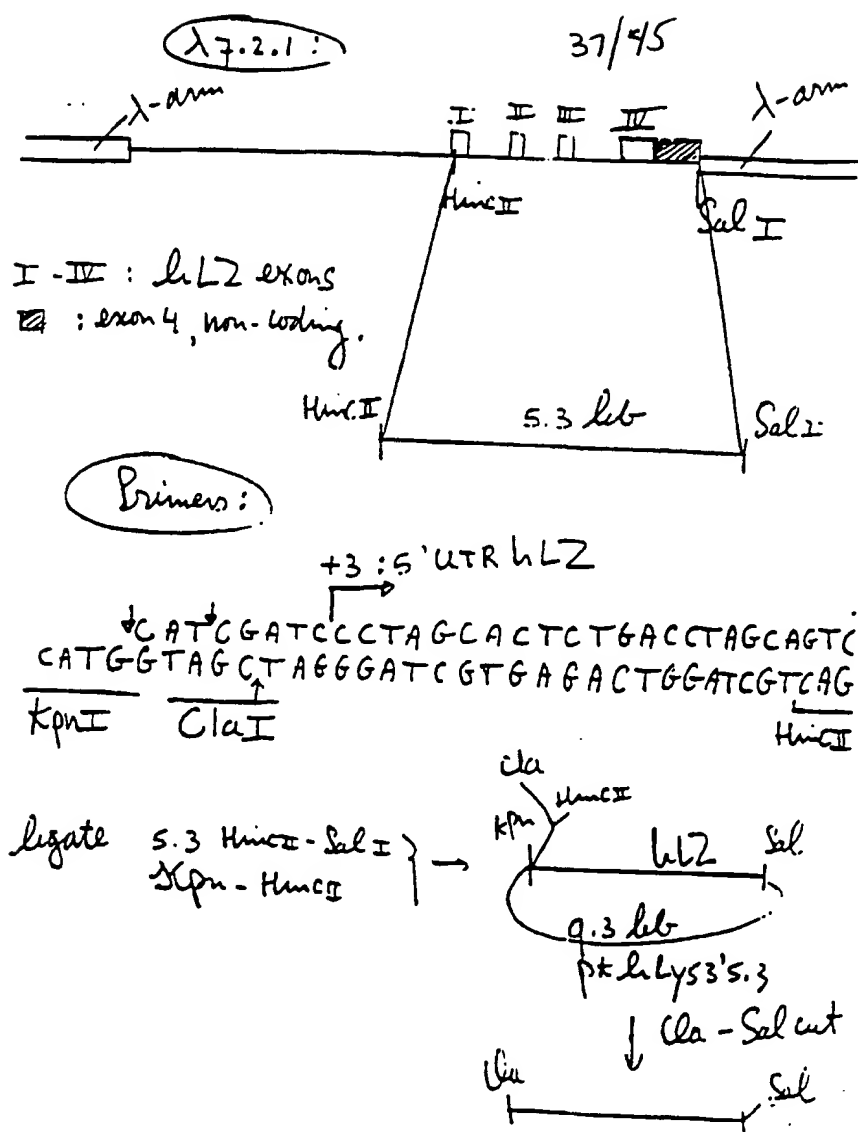 λ7.2.1:
37/45
λ-arm
λ-arm
I II III IV
Hinc II
Sal I
I-IV : hLZ exons
: exon 4, non-coding.
Hinc II
5.3 kb
Sal I
Primers:
+3 : 5'UTR hLZ
CATCGATCCCTAGCACTCTGACCTAGCAGTC
CATGGTAGCTAGGGATCGTGAGACTGGATCGTCAG
KpnI ClaI HincII
Cla
HincII
Kpn
hLZ Sal
ligate 5.3 HincII-Sal I
Kpn-HincII
9.3 kb
hLys3'5.3
Cla-Sal cut
Cla Sal